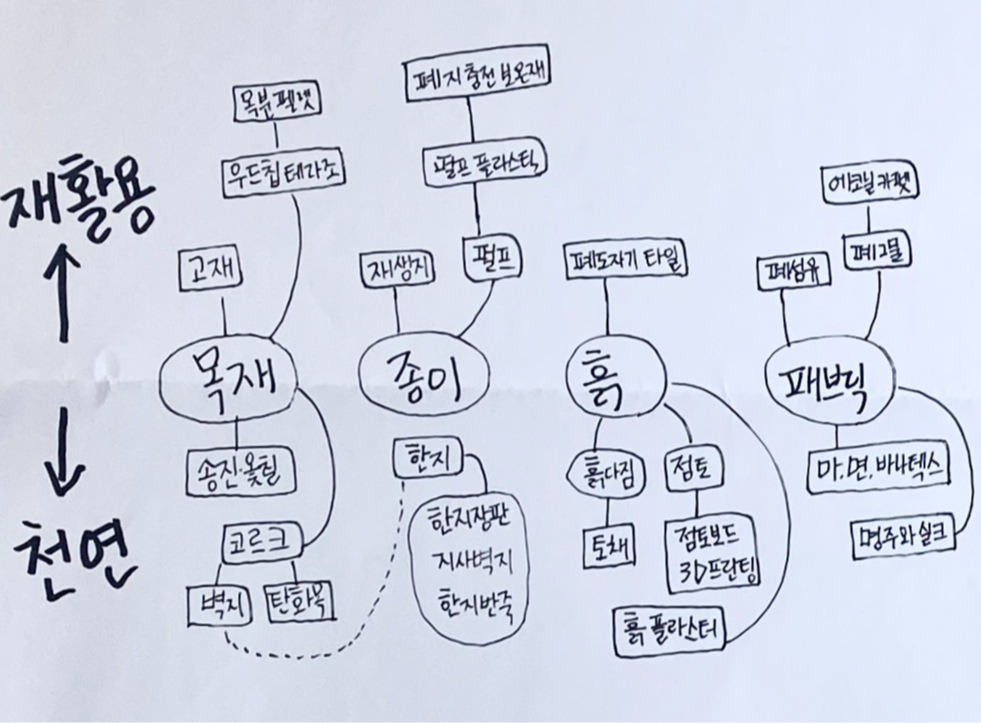 폐지충전보온재
목분펠렛
펄프 플라스틱
우드칩테라조
에코닐카펫
재활용
고재
재생지
펄프
폐도자기 타일
폐섬유
폐그물
목재
종이
흙
패브릭
송진·옻칠
한지
흙다짐
점토
마.면.바나텍스
한지장판
지사벽지
한지반죽
코르크
토채
점토보드
3D프린팅
명주와 쉴크
천연
벽지
탄화목
흙 플라스터